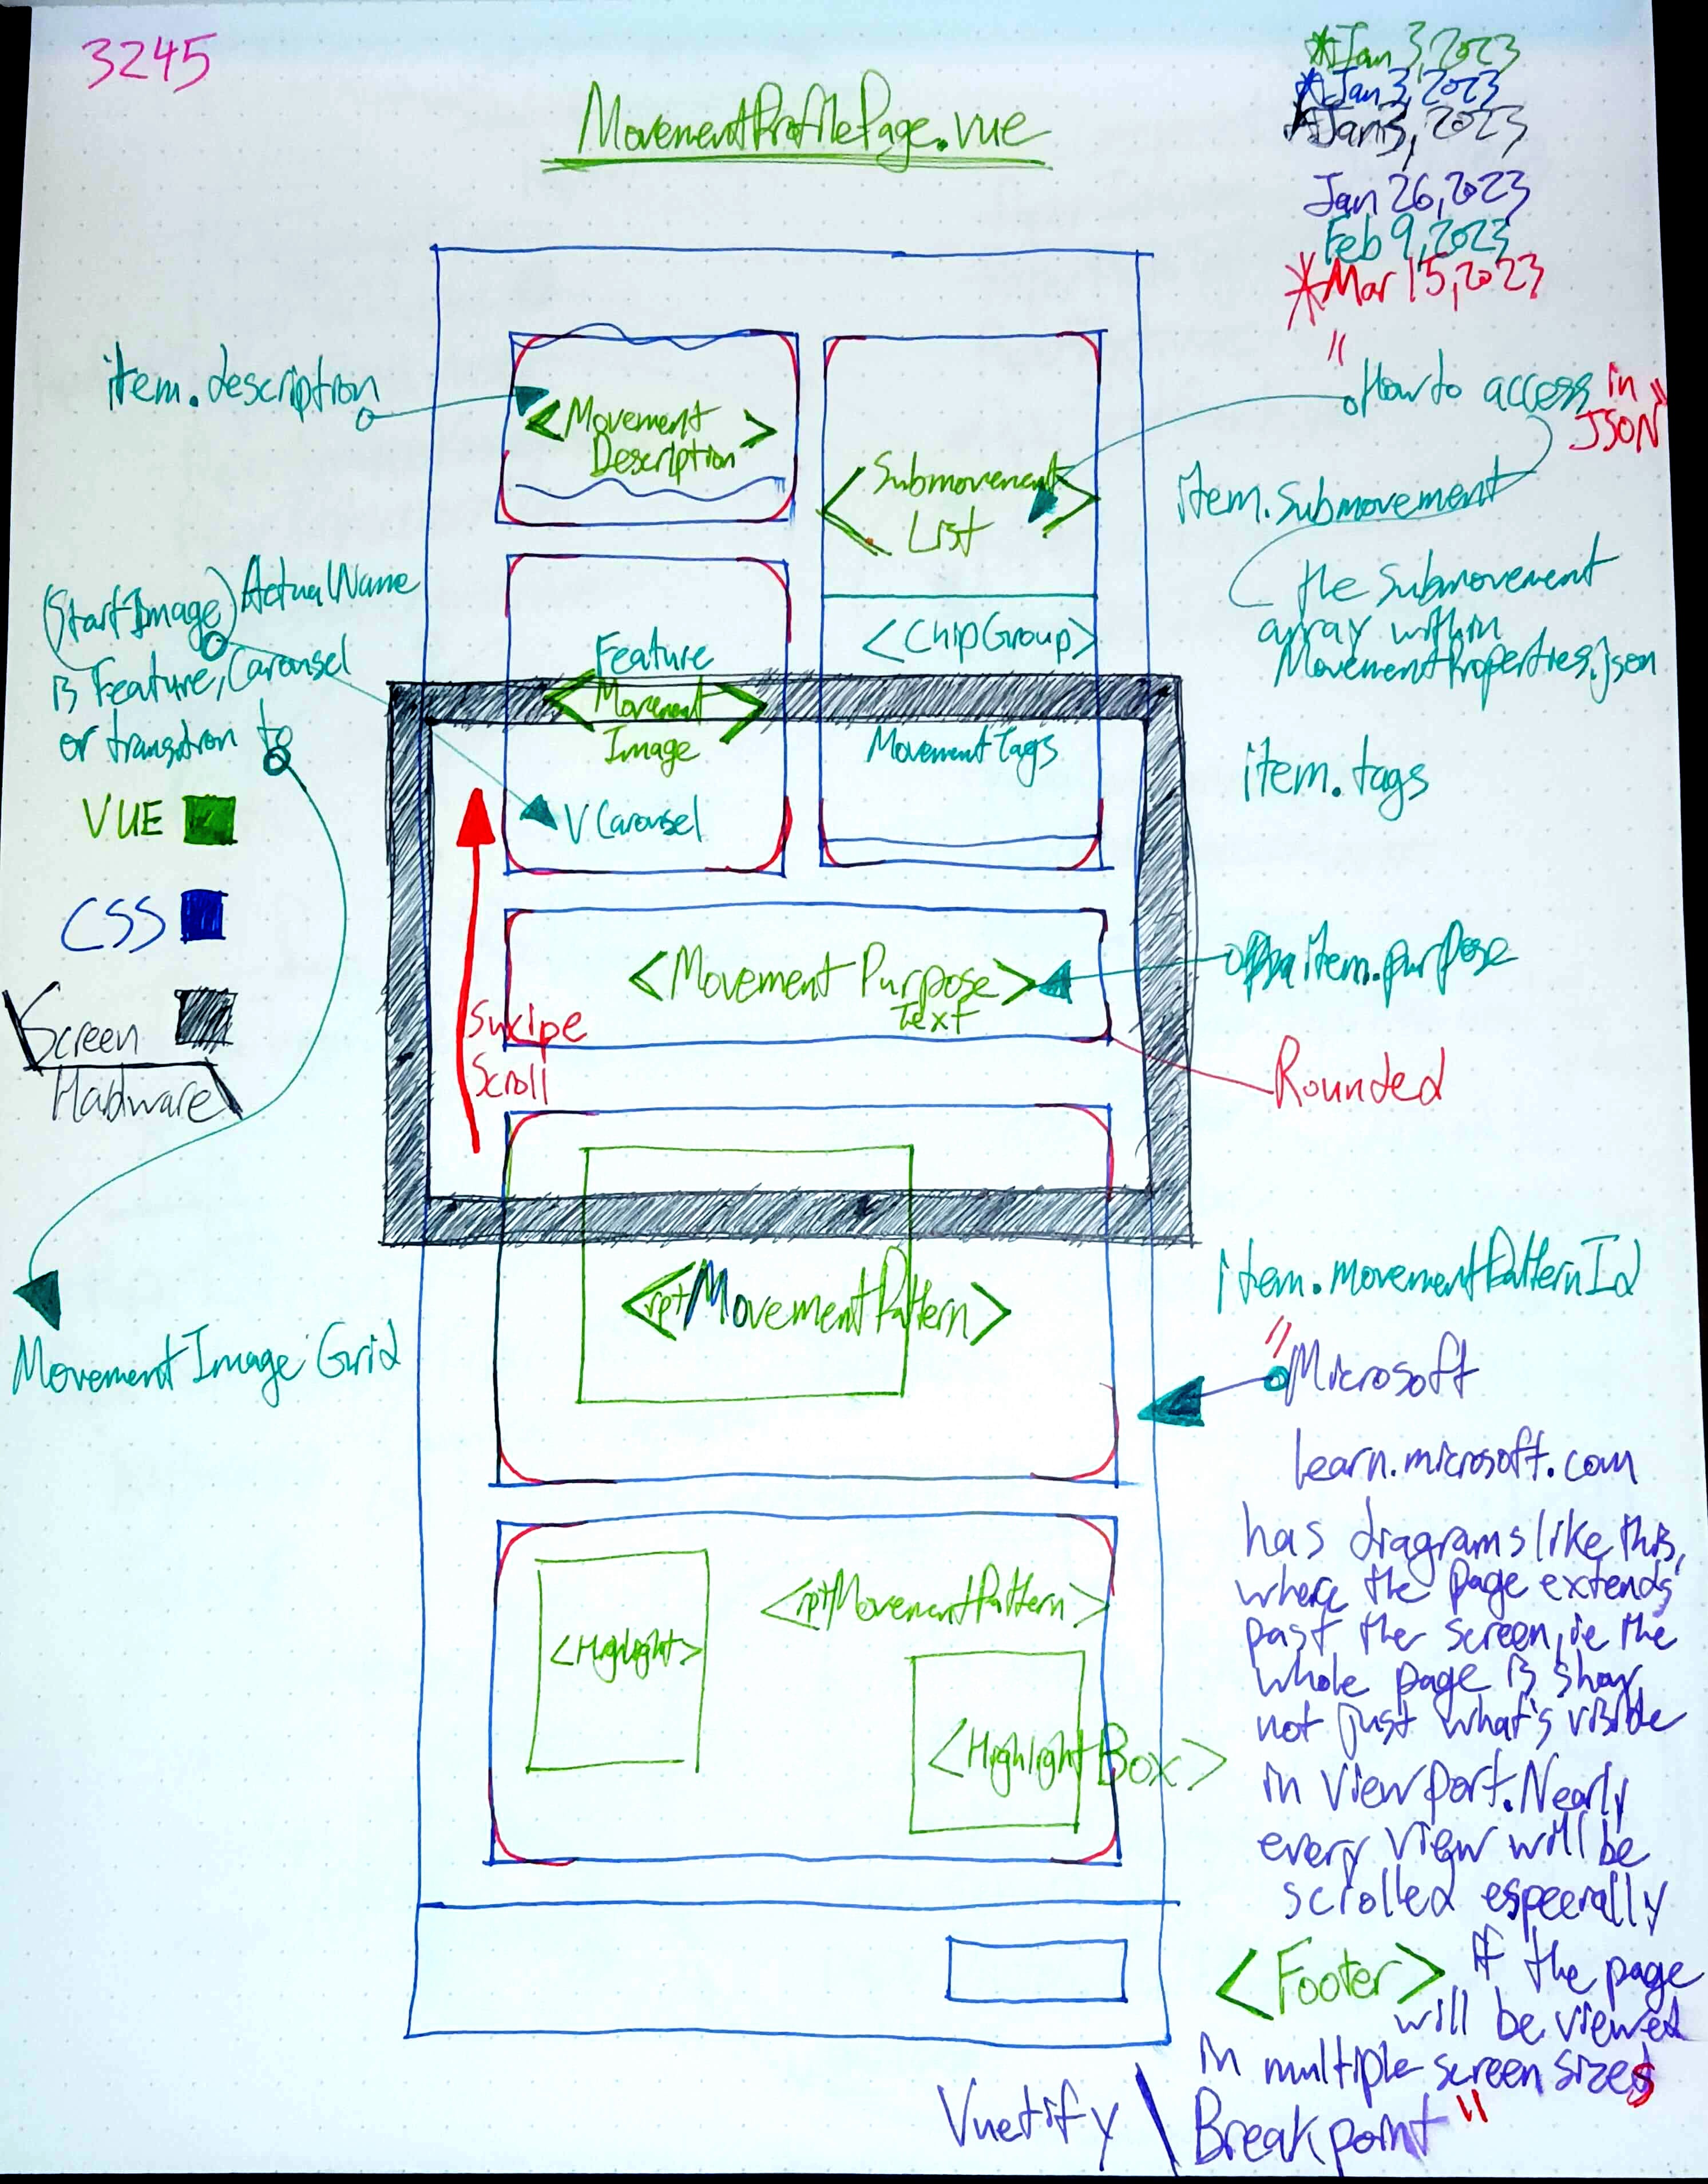 3245
MovementProfilePage.vue
*Jan 3, 2023
*Jan 3, 2023
*Jan 3, 2023
Jan 26, 2023
Feb 9, 2023
*Mar 15, 2023
item.description
<Movement
Description>
<Submovement
List>
"How to access in
JSON"
item.Submovement
the submovement
array within
MovementProperties.json
(Start Image) Actual Name
is Feature, Carousel
or transition to
Feature
<Movement
Image>
V Carousel
<ChipGroup>
Movement Tags
item.tags
VUE
CSS
Screen
Hardware
Swipe
Scroll
<Movement Purpose
Text>
item.purpose
Rounded
<rptMovementPattern>
item.movementPatternId
MovementImageGrid
"Microsoft
learn.microsoft.com
has diagrams like this,
where the page extends
past the screen, ie the
whole page is shown,
not just what's visible
in viewport. Nearly
every view will be
scrolled especially
if the page
will be viewed
in multiple screen sizes
Breakpoint"
<rptMovementPattern>
<Highlight>
<Highlight Box>
<Footer>
Vuetify \